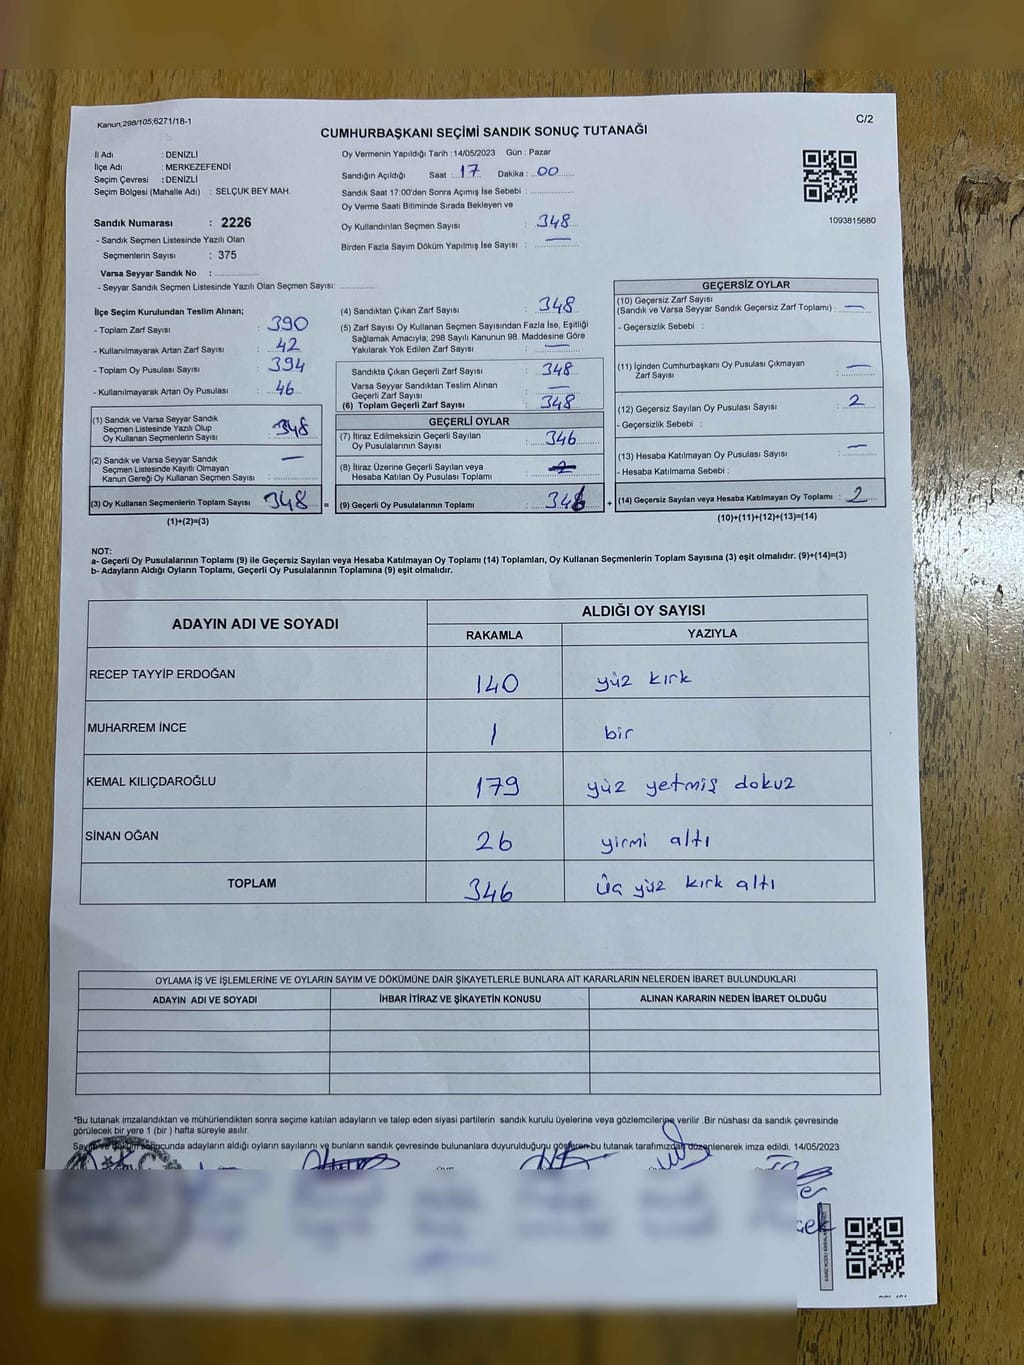 Kanun;298/105;6271/18-1
C/2
CUMHURBAŞKANI SEÇİMİ SANDIK SONUÇ TUTANAĞI
İl Adı : DENİZLİ
İlçe Adı : MERKEZEFENDİ
Seçim Çevresi : DENİZLİ
Seçim Bölgesi (Mahalle Adı) : SELÇUK BEY MAH.
Sandık Numarası : 2226
- Sandık Seçmen Listesinde Yazılı Olan
Seçmenlerin Sayısı : 375
Varsa Seyyar Sandık No :
- Seyyar Sandık Seçmen Listesinde Yazılı Olan Seçmen Sayısı:
Oy Vermenin Yapıldığı Tarih : 14/05/2023 Gün : Pazar
Sandığın Açıldığı Saat : 17 Dakika : 00
Sandık Saat 17:00'den Sonra Açımış İse Sebebi :
Oy Verme Saati Bitiminde Sırada Bekleyen ve
Oy Kullandırılan Seçmen Sayısı : 348
Birden Fazla Sayım Döküm Yapılmış İse Sayısı : —
1093815680
İlçe Seçim Kurulundan Teslim Alınan;
- Toplam Zarf Sayısı : 390
- Kullanılmayarak Artan Zarf Sayısı : 42
- Toplam Oy Pusulası Sayısı : 394
- Kullanılmayarak Artan Oy Pusulası : 46
(1) Sandık ve Varsa Seyyar Sandık
Seçmen Listesinde Yazılı Olup
Oy Kullanan Seçmenlerin Sayısı : 348
(2) Sandık ve Varsa Seyyar Sandık
Seçmen Listesinde Kayıtlı Olmayan
Kanun Gereği Oy Kullanan Seçmen Sayısı : —
(3) Oy Kullanan Seçmenlerin Toplam Sayısı 348 =
(1)+(2)=(3)
(4) Sandıktan Çıkan Zarf Sayısı : 348
(5) Zarf Sayısı Oy Kullanan Seçmen Sayısından Fazla İse, Eşitliği
Sağlamak Amacıyla; 298 Sayılı Kanunun 98. Maddesine Göre
Yakılarak Yok Edilen Zarf Sayısı : —
Sandıkta Çıkan Geçerli Zarf Sayısı : 348
Varsa Seyyar Sandıktan Teslim Alınan
Geçerli Zarf Sayısı : —
(6) Toplam Geçerli Zarf Sayısı : 348
GEÇERLİ OYLAR
(7) İtiraz Edilmeksizin Geçerli Sayılan
Oy Pusulalarının Sayısı : 346
(8) İtiraz Üzerine Geçerli Sayılan veya
Hesaba Katılan Oy Pusulası Toplamı :
(9) Geçerli Oy Pusulalarının Toplamı : 346 +
GEÇERSİZ OYLAR
(10) Geçersiz Zarf Sayısı
(Sandık ve Varsa Seyyar Sandık Geçersiz Zarf Toplamı) : —
- Geçersizlik Sebebi :
(11) İçinden Cumhurbaşkanı Oy Pusulası Çıkmayan
Zarf Sayısı : —
(12) Geçersiz Sayılan Oy Pusulası Sayısı : 2
- Geçersizlik Sebebi :
(13) Hesaba Katılmayan Oy Pusulası Sayısı : —
- Hesaba Katılmama Sebebi :
(14) Geçersiz Sayılan veya Hesaba Katılmayan Oy Toplamı : 2
(10)+(11)+(12)+(13)=(14)
NOT:
a- Geçerli Oy Pusulalarının Toplamı (9) ile Geçersiz Sayılan veya Hesaba Katılmayan Oy Toplamı (14) Toplamları, Oy Kullanan Seçmenlerin Toplam Sayısına (3) eşit olmalıdır. (9)+(14)=(3)
b- Adayların Aldığı Oyların Toplamı, Geçerli Oy Pusulalarının Toplamına (9) eşit olmalıdır.
ADAYIN ADI VE SOYADI
ALDIĞI OY SAYISI
RAKAMLA YAZIYLA
RECEP TAYYİP ERDOĞAN 140 yüz kırk
MUHARREM İNCE 1 bir
KEMAL KILIÇDAROĞLU 179 yüz yetmiş dokuz
SİNAN OĞAN 26 yirmi altı
TOPLAM 346 üç yüz kırk altı
OYLAMA İŞ VE İŞLEMLERİNE VE OYLARIN SAYIM VE DÖKÜMÜNE DAİR ŞİKAYETLERLE BUNLARA AİT KARARLARIN NELERDEN İBARET BULUNDUKLARI
ADAYIN ADI VE SOYADI İHBAR İTİRAZ VE ŞİKAYETİN KONUSU ALINAN KARARIN NEDEN İBARET OLDUĞU
*Bu tutanak imzalandıktan ve mühürlendikten sonra seçime katılan adayların ve talep eden siyasi partilerin sandık kurulu üyelerine veya gözlemcilerine verilir .Bir nüshası da sandık çevresinde
görülecek bir yere 1 (bir ) hafta süreyle asılır.
adayların aldığı oyların sayılarını ve bunların sandık çevresinde bulunanlara duyurulduğunu gösteren bu tutanak tarafımızdan düzenlenerek imza edildi. 14/05/2023